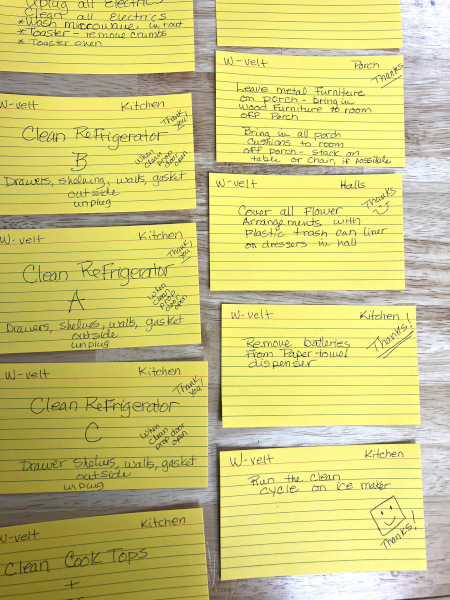 all Electric
Clean all Electrics
*Wash microwave, in + out
*Toaster - remove crumbs
*Toaster oven
W-velt Kitchen
Thank you!
Clean Refrigerator
B
When clean prop door open
Drawers, shelving, walls, gasket
outside
unplug
W-velt Kitchen
Thank you
Clean Refrigerator
A
When clean prop door open
Drawers, shelves, walls, gasket
outside
unplug
W-velt Kitchen
Thank you!
Clean Refrigerator
C
When clean prop door open
Drawer Shelves, walls, gasket
outside
unplug
W-velt Kitchen
Clean Cook Tops
+
W-velt Porch
Thanks
Leave metal Furniture
on porch - bring in
Wood Furniture to room
off Porch
Bring in all porch
cushions to room
off porch - stack on
table or chair, if possible
W-velt Halls
Thanks
Cover all Flower
Arrangements with
Plastic trash can liner
on dressers in hall
W-velt Kitchen
Thanks!
Remove batteries
From Paper towel
dispenser
W-velt Kitchen
Run the clean
cycle on ice maker
Thanks!